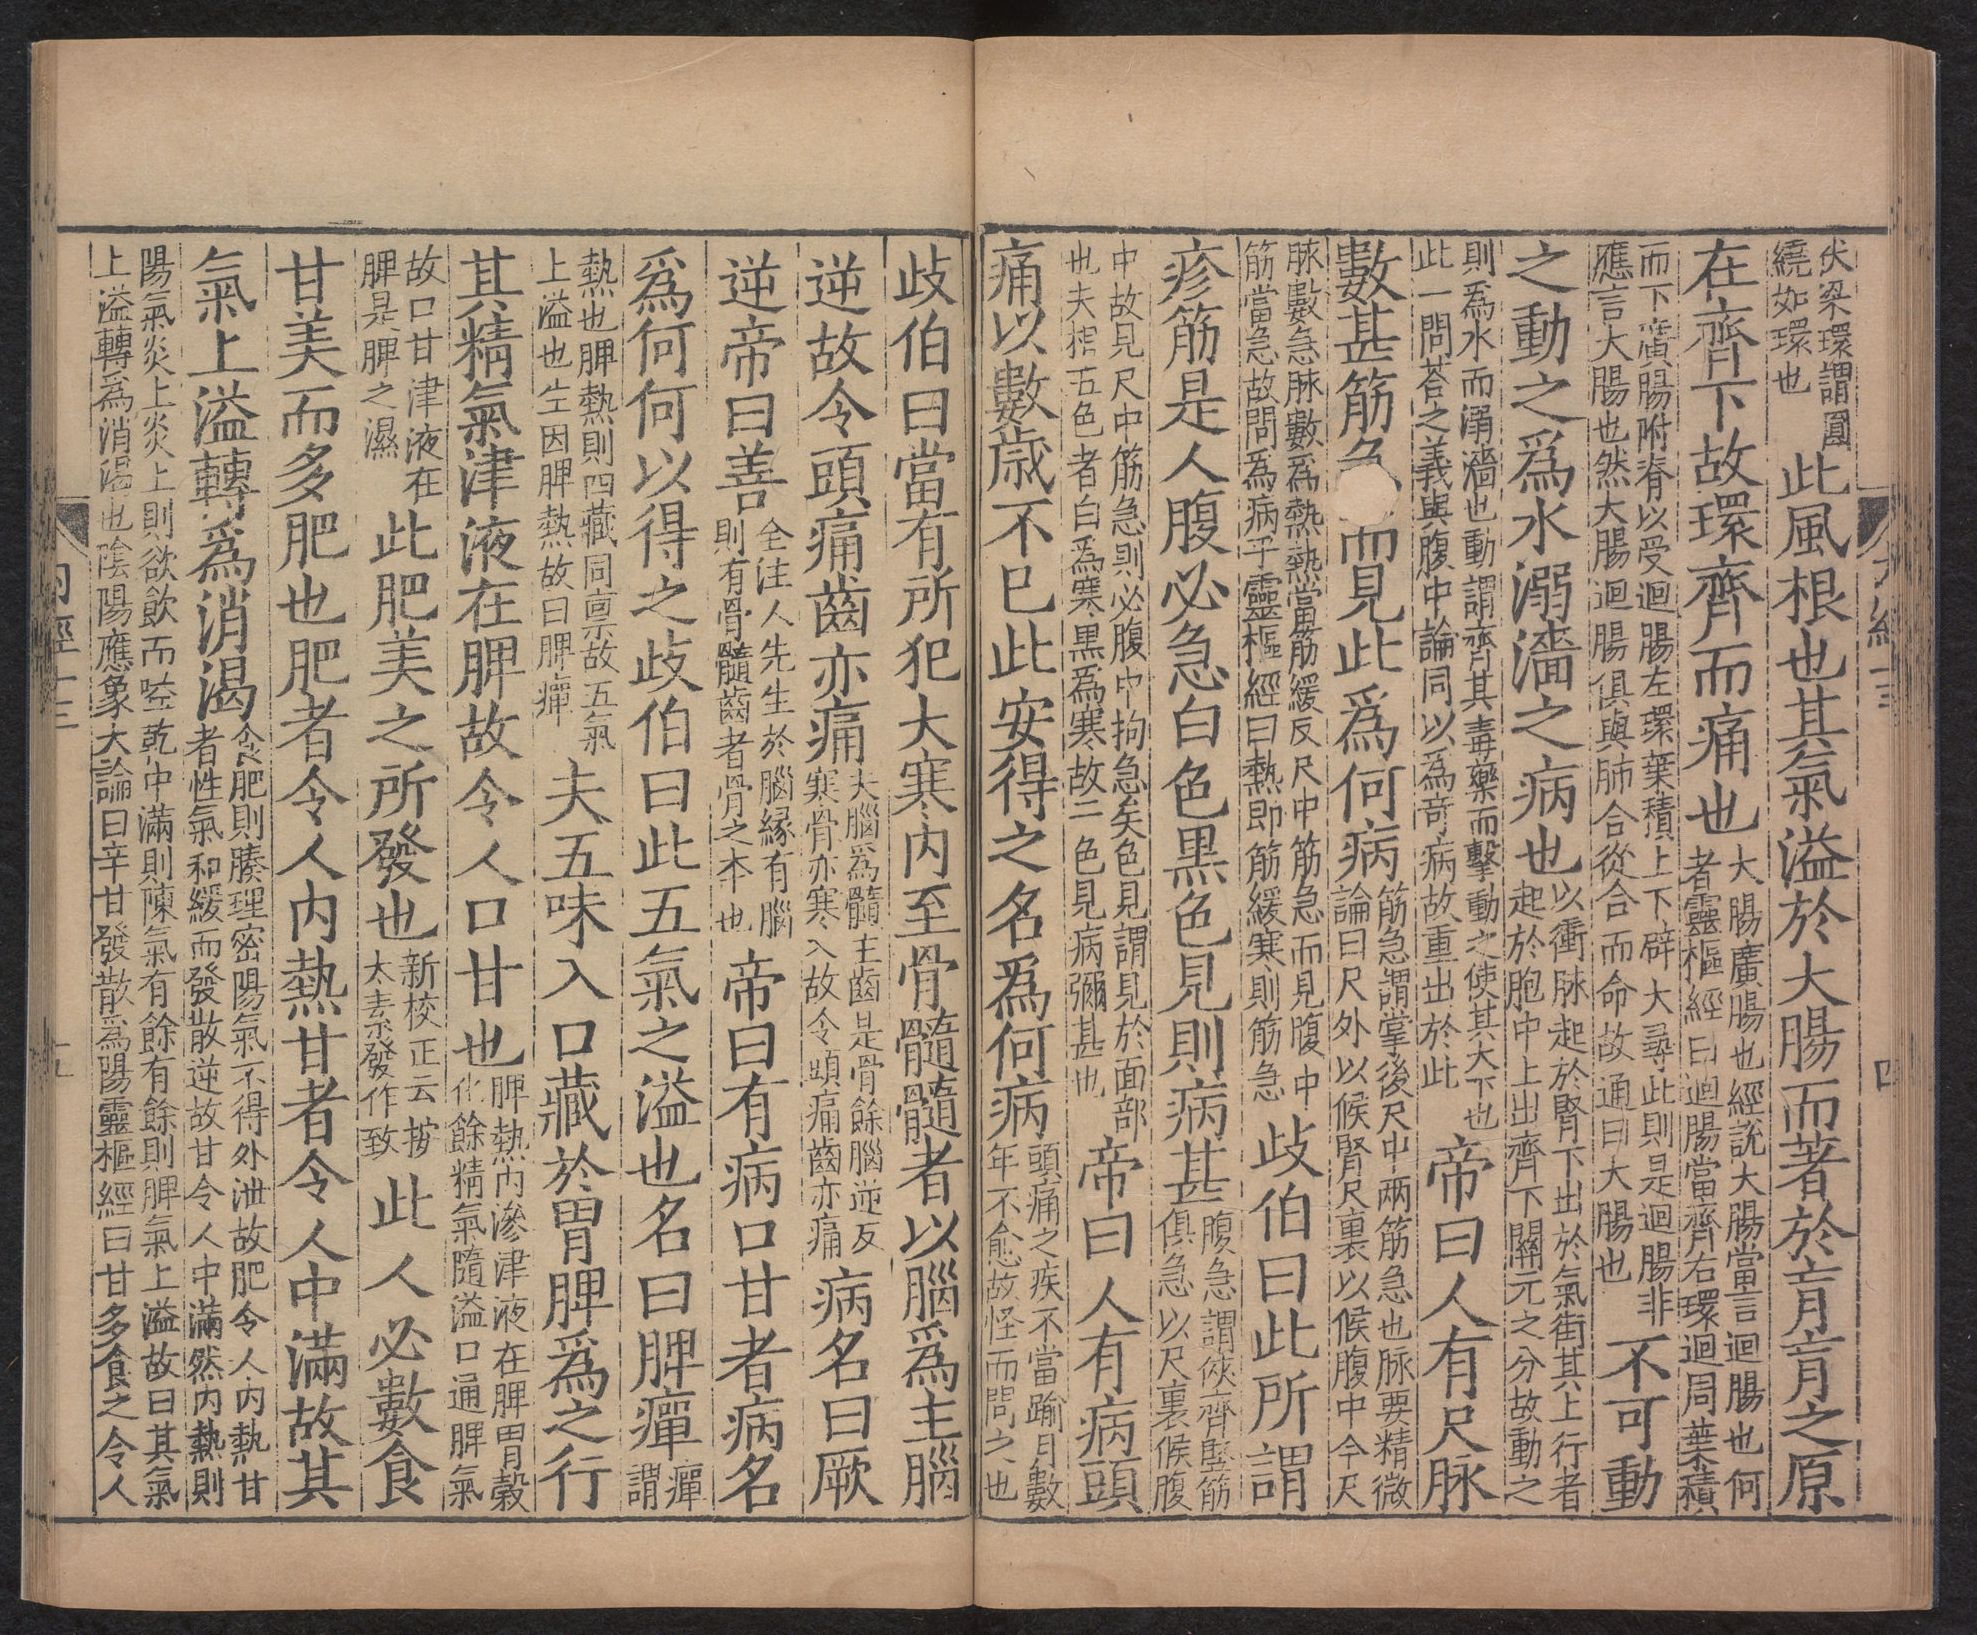 伏梁環謂圓
繞如環也
此風根也其氣溢於大腸而著於肓肓之原
在齊下故環齊而痛也
大腸廣腸也經說大腸當言迴腸也何
者靈樞經曰迴腸當齊右環迴周葉積
而下廣腸附脊以受迴腸左環葉積上下辟大尋此則是迴腸非
應言大腸也然大腸迴腸俱與肺合從合而命故通曰大腸也
不可動
之動之爲水溺濇之病也
以衝脉起於腎下出於氣街其上行者
起於胞中上出齊下關元之分故動之
則爲水而溺濇也動謂齊其毒藥而擊動之使其大下也
此一問荅之義與腹中論同以爲奇病故重出於此
帝曰人有尺脉
數甚筋急而見此爲何病
筋急謂掌後尺中兩筋急也脉要精微
論曰尺外以候腎尺裏以候腹中今天
脉數急脉數爲熱熱當筋緩反尺中筋急而見腹中
筋當急故問爲病乎靈樞經曰熱即筋緩寒則筋急
歧伯曰此所謂
疹筋是人腹必急白色黑色見則病甚
腹急謂俠齊竪筋
俱急以尺裏候腹
中故見尺中筋急則必腹中拘急矣色見謂見於面部
也夫相五色者白爲寒黑爲寒故二色見病彌甚也
帝曰人有病頭
痛以數歲不已此安得之名爲何病
頭痛之疾不當踰月數
年不愈故怪而問之也
歧伯曰當有所犯大寒内至骨髓髓者以腦爲主腦
逆故令頭痛齒亦痛
夫腦爲髓主齒是骨餘腦逆反
寒骨亦寒入故令頭痛齒亦痛
病名曰厥
逆帝曰善
全注人先生於腦縁有腦
則有骨髓齒者骨之本也
帝曰有病口甘者病名
爲何何以得之歧伯曰此五氣之溢也名曰脾癉
癉
謂
熱也脾熱則四藏同稟故五氣
上溢也生因脾熱故曰脾癉
夫五味入口藏於胃脾爲之行
其精氣津液在脾故令人口甘也
脾熱内滲津液在脾胃穀
化餘精氣隨溢口通脾氣
故口甘津液在
脾是脾之濕
此肥美之所發也
新校正云按
太素發作致
此人必數食
甘美而多肥也肥者令人内熱甘者令人中滿故其
氣上溢轉爲消渴
食肥則腠理密陽氣不得外泄故肥令人内熱甘
者性氣和緩而發散逆故甘令人中滿然内熱則
陽氣炎上炎上則欲飲而嗌乾中滿則陳氣有餘有餘則脾氣上溢故曰其氣
上溢轉爲消渴也陰陽應象大論曰辛甘發散爲陽靈樞經曰甘多食之令人
内經十三